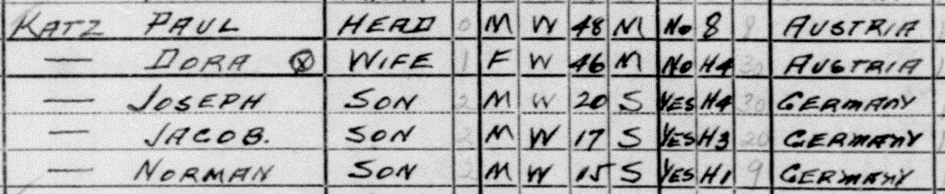 KATZ PAUL HEAD 0 M W 48 M No 8 8 AUSTRIA
— DORA ⓧ WIFE 1 F W 46 M No H4 30 AUSTRIA
— JOSEPH SON 2 M W 20 S YES H4 30 GERMANY
— JACOB. SON 2 M W 17 S YES H3 20 GERMANY
— NORMAN SON 2 M W 15 S YES H1 9 GERMANY